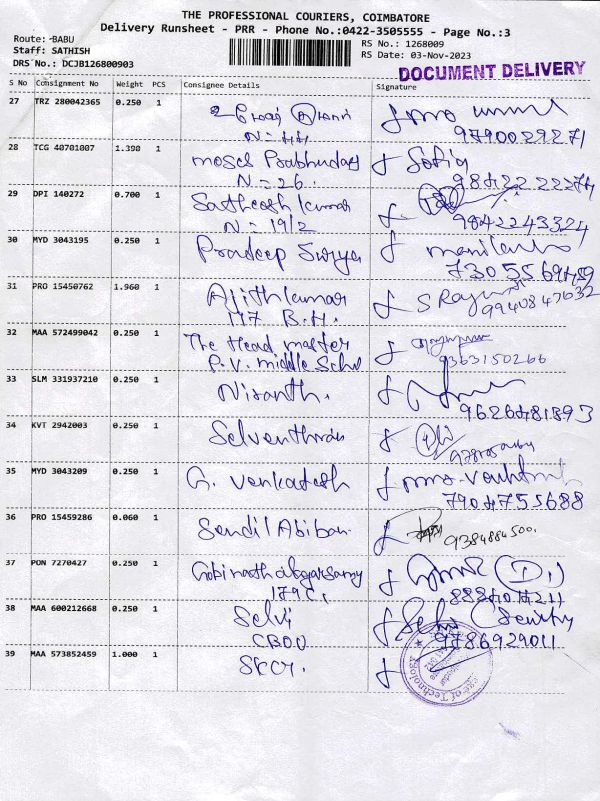 THE PROFESSIONAL COURIERS, COIMBATORE
Delivery Runsheet - PRR - Phone No.:0422-3505555 - Page No.:3
Route: -BABU
RS No.: 1268009
Staff: SATHISH
RS Date: 03-Nov-2023
DRS No.: DCJB126800903
DOCUMENT DELIVERY
S No Consignment No Weight PCS Consignee Details Signature
27 TRZ 280042365 0.250 1
N = 44
9790029271
28 TCG 40701007 1.390 1 moses Prabhudas Sofia
N = 26.
29 DPI 140272 0.700 1 Satheesh kumar
N = 19/2 9842243324
30 MYD 3043195 0.250 1 Pradeep Surya
7305569459
31 PRO 15450762 1.960 1 Ajithkumar S Raju
177 B.H. 9940847632
32 MAA 572499042 0.250 1 The Head master
P.V. middle Schl 9363150266
33 SLM 331937210 0.250 1 Nisanth.
9626481393
34 KVT 2942003 0.250 1
35 MYD 3043209 0.250 1 G. Venkatesh
7904755688
36 PRO 15459286 0.060 1 Sendil Abiban
9384884500.
37 PON 7270427 0.250 1
38 MAA 600212668 0.250 1 Selvi
9786929011
39 MAA 573852459 1.000 1 SKCT.
of Technology